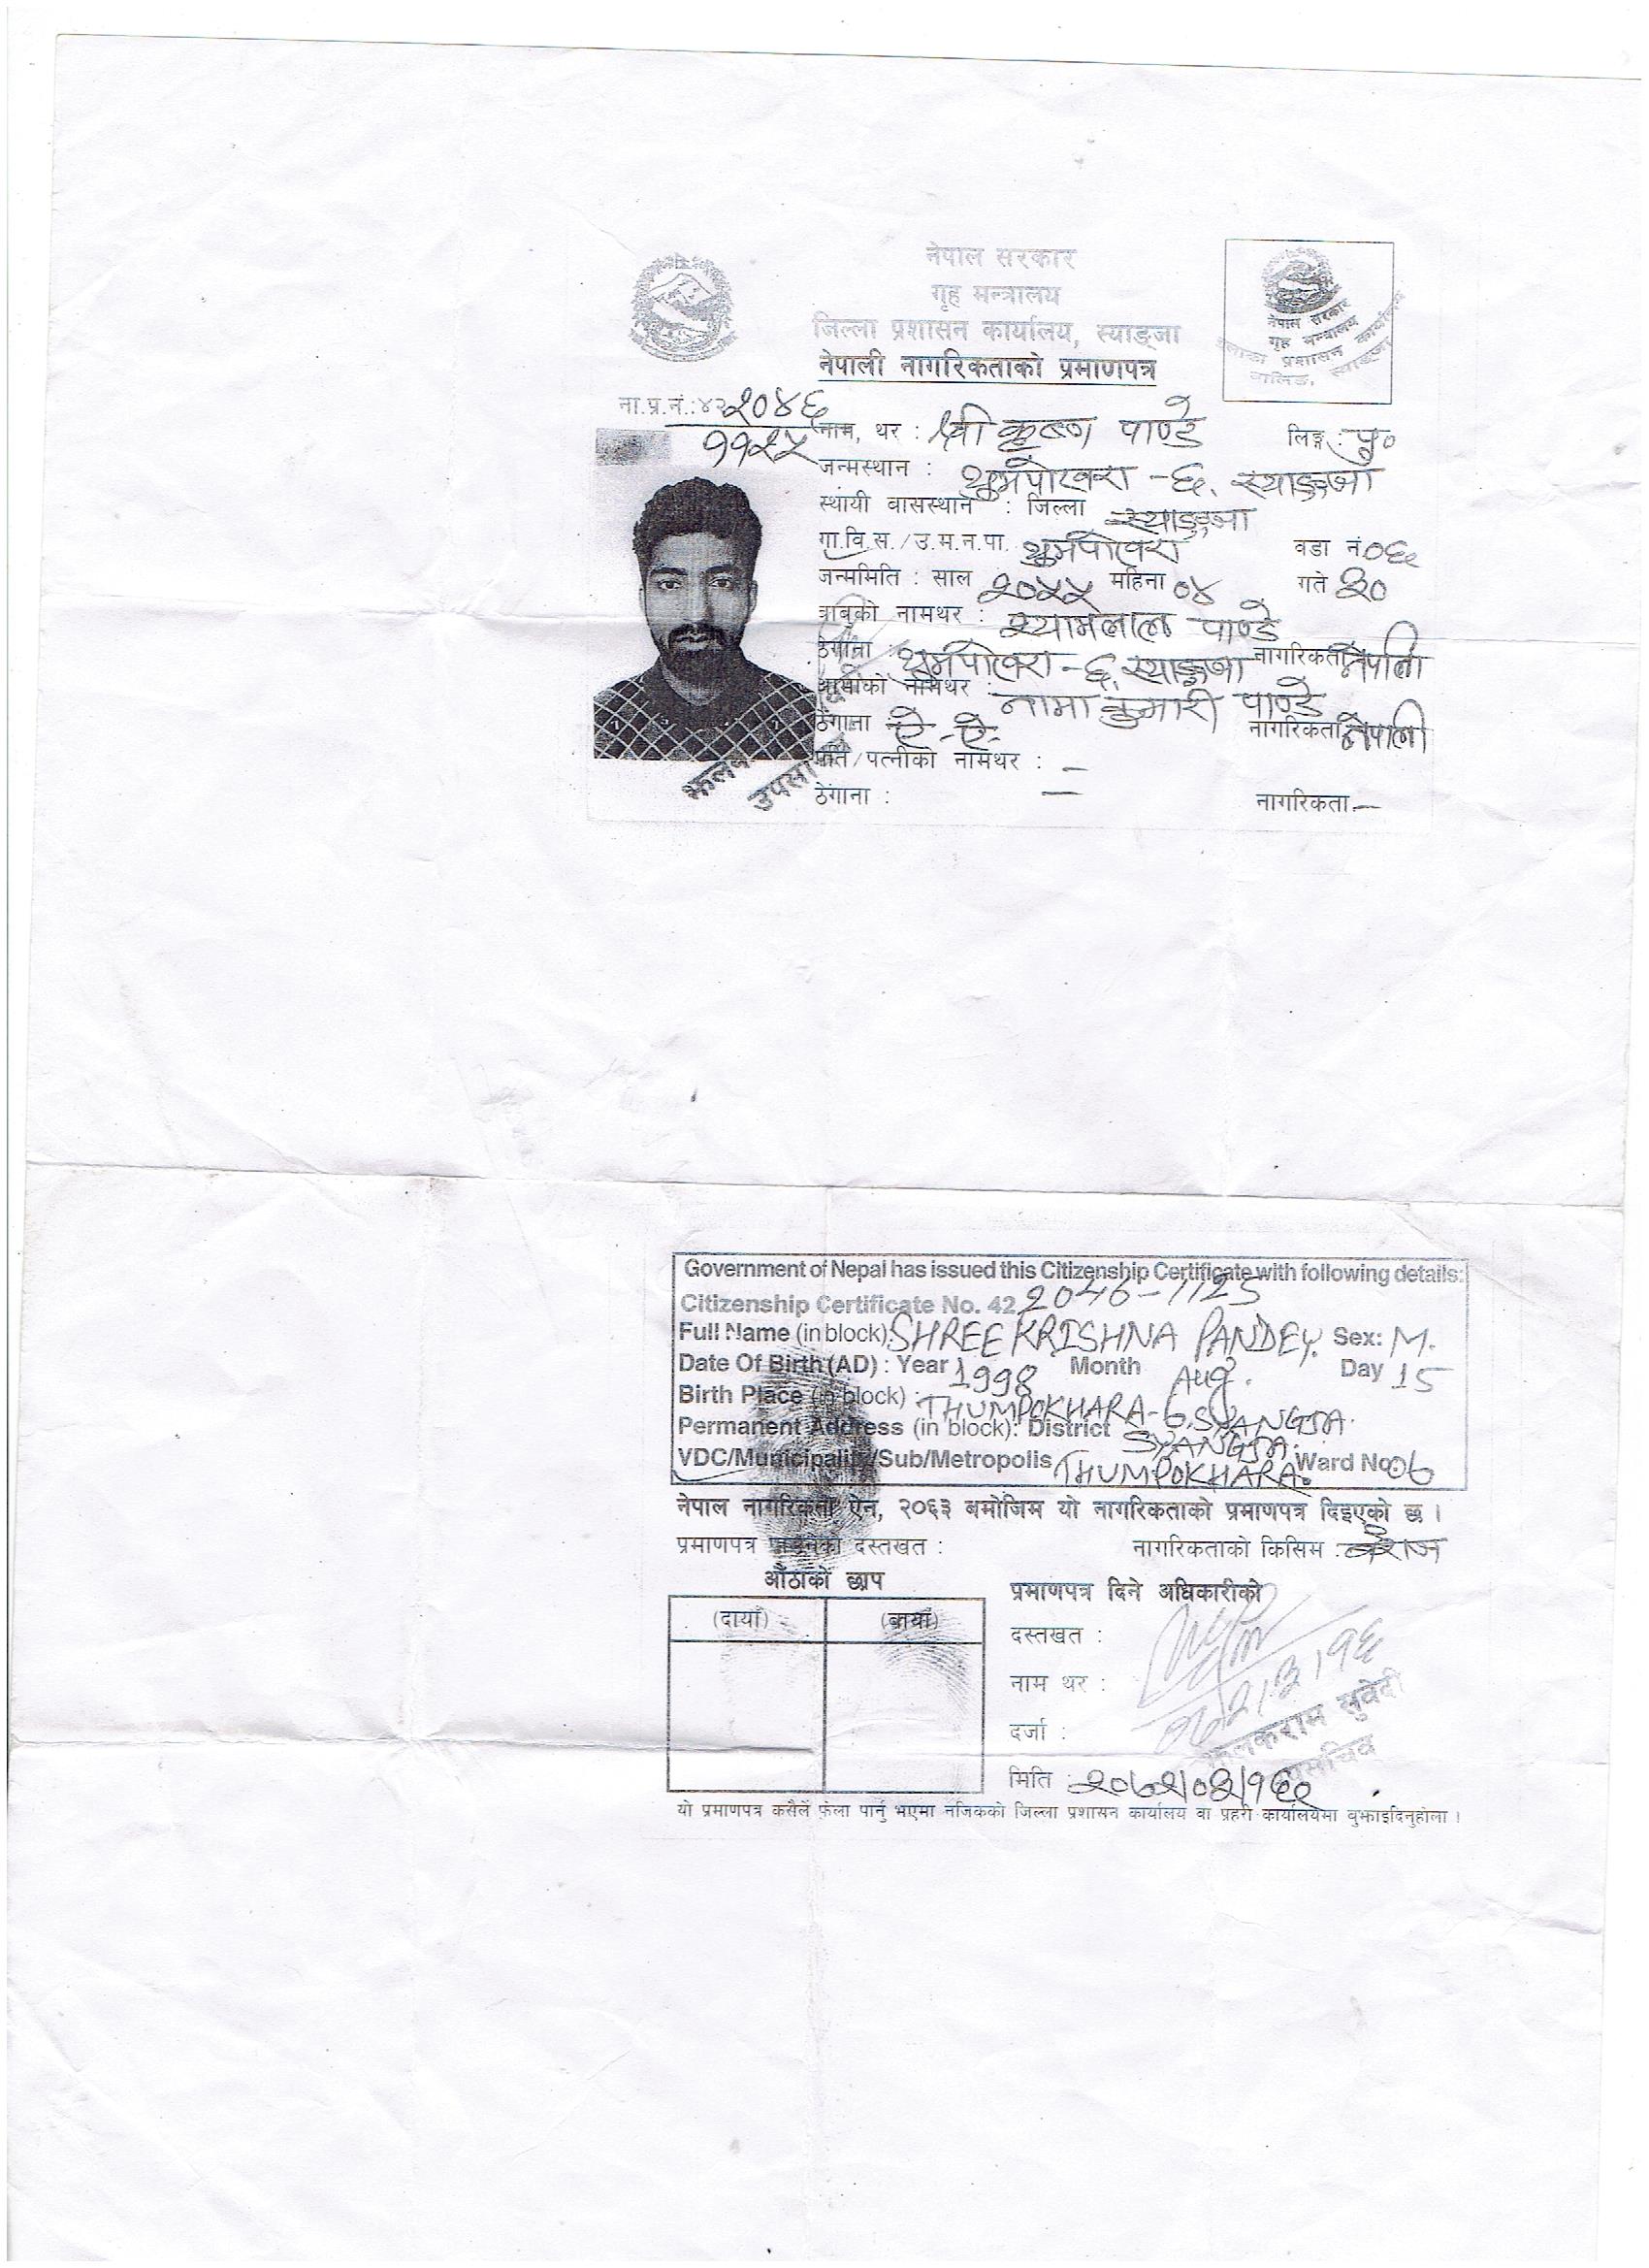 नेपाल सरकार
गृह मन्त्रालय
जिल्ला प्रशासन कार्यालय, स्याङ्जा
नेपाली नागरिकताको प्रमाणपत्र
नेपाल सरकार
गृह मन्त्रालय
इलाका प्रशासन कार्यालय
वालिङ, स्याङ्जा
ना.प्र.नं.:४२ २०४६
११२५
नाम, थर : श्री कृष्ण पाण्डे लिङ्ग : पु०
जन्मस्थान : थुमपोखरा -६, स्याङ्जा
स्थायी वासस्थान : जिल्ला स्याङ्जा
गा.वि.स./उ.म.न.पा. थुमपोखरा वडा नं ०६
जन्ममिति : साल २०५५ महिना ०४ गते ३०
बाबुको नामथर : श्यामलाल पाण्डे
ठेगाना : थुमपोखरा -६, स्याङ्जा नागरिकता नेपाली
आमाको नामथर : नामा कुमारी पाण्डे
ठेगाना ऐ-ऐ- नागरिकता नेपाली
पति/पत्नीको नामथर : —
ठेगाना : — नागरिकता —
Government of Nepal has issued this Citizenship Certificate with following details:
Citizenship Certificate No. 42 2046-1125
Full Name (in block): SHREE KRISHNA PANDEY. Sex: M.
Date Of Birth (AD) : Year 1998 Month Aug. Day 15
Birth Place (in block) : THUMPOKHARA-6, SYANGJA.
Permanent Address (in block): District SYANGJA.
VDC/Municipality/Sub/Metropolis THUMPOKHARA. Ward No. 06
नेपाल नागरिकता ऐन, २०६३ बमोजिम यो नागरिकताको प्रमाणपत्र दिइएको छ ।
प्रमाणपत्र पाउनेको दस्तखत : नागरिकताको किसिम : वंशज
औंठाको छाप
(दायाँ) (बायाँ)
प्रमाणपत्र दिने अधिकारीको
दस्तखत :
नाम थर :
दर्जा :
सुवेदी
मिति : २०७२/०३/१६
यो प्रमाणपत्र कसैले फेला पार्नु भएमा नजिकको जिल्ला प्रशासन कार्यालय वा प्रहरी कार्यालयमा बुझाइदिनुहोला ।